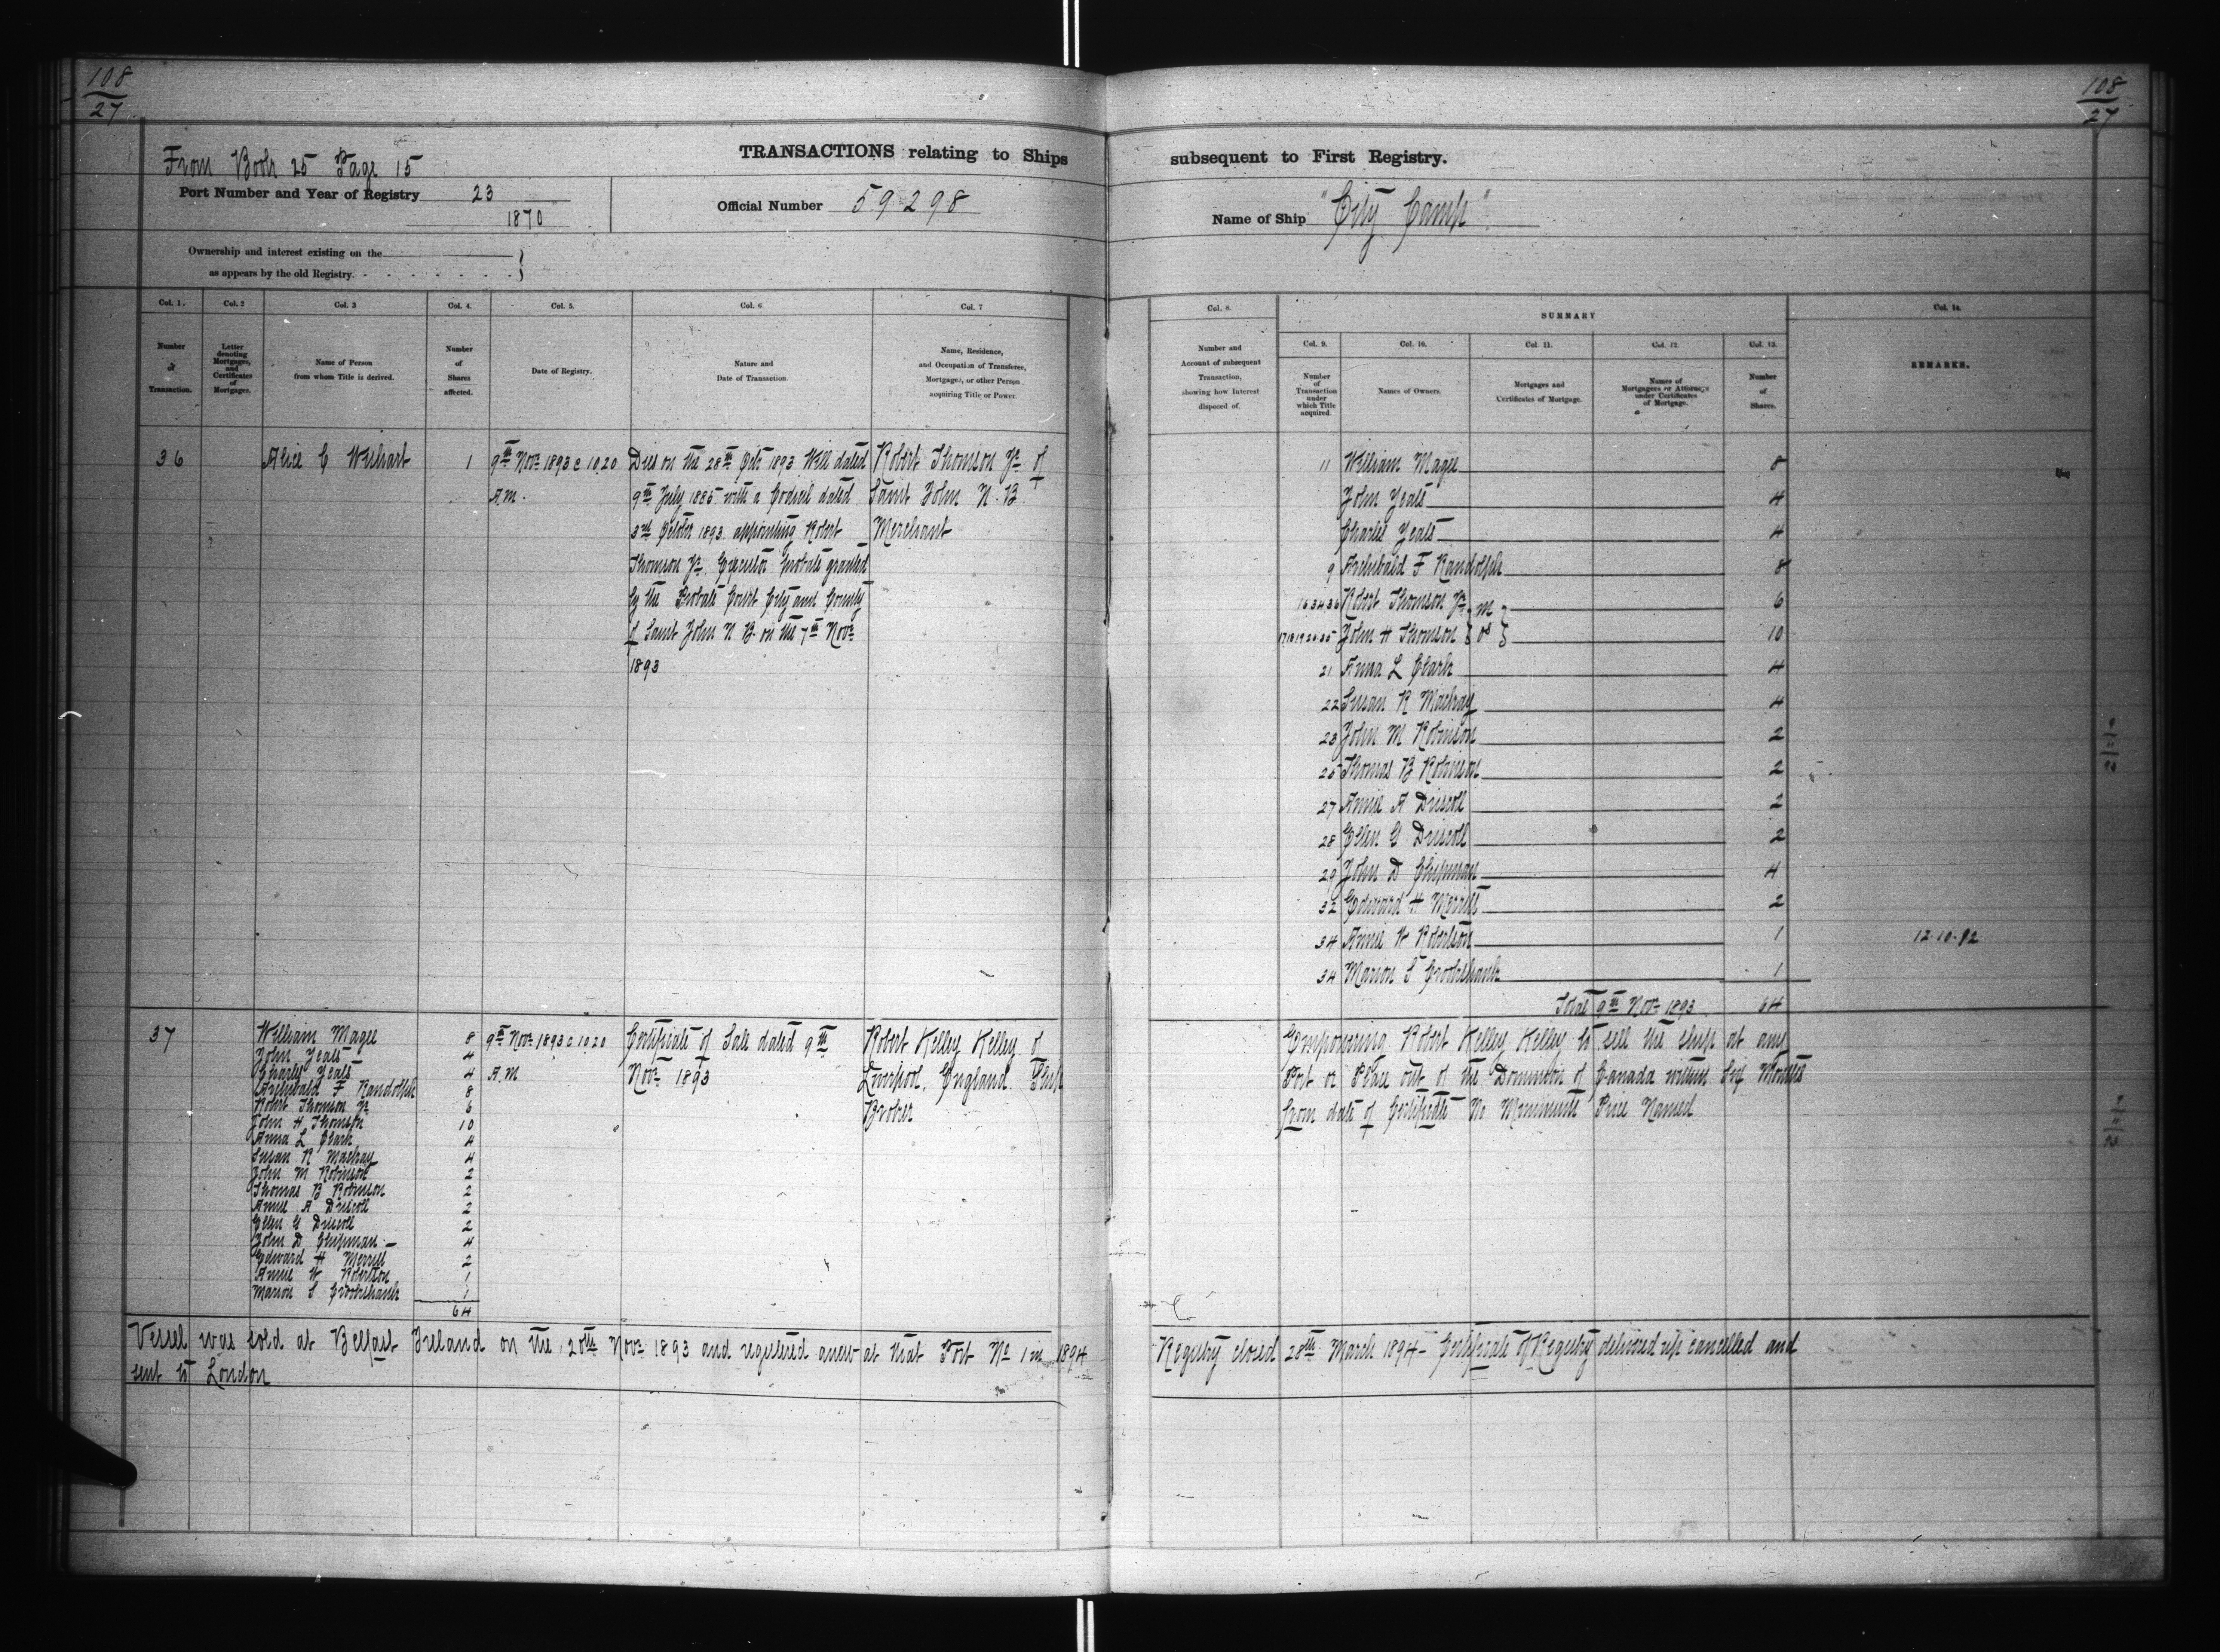 108
27
108
27
From Book 25 Page 15
TRANSACTIONS relating to Ships subsequent to First Registry.
Port Number and Year of Registry 23
1870
Official Number 59298
Name of Ship "City Camp"
Ownership and interest existing on the
as appears by the old Registry.
Col. 1. Col. 2 Col. 3 Col. 4. Col. 5. Col. 6 Col. 7
Number
of
Transaction.
Letter
denoting
Mortgages,
and
Certificates
of
Mortgages.
Name of Person
from whom Title is derived.
Number
of
Shares
affected.
Date of Registry.
Nature and
Date of Transaction.
Name, Residence,
and Occupation of Transferee,
Mortgagee, or other Person
acquiring Title or Power.
Col. 8.
Number and
Account of subsequent
Transaction,
showing how Interest
disposed of.
SUMMARY
Col. 9. Col. 10. Col. 11. Col. 12. Col. 13.
Number
of
Transaction
under
which Title
acquired.
Names of Owners.
Mortgages and
Certificates of Mortgage.
Names of
Mortgagees or Attorneys
under Certificates
of Mortgage.
Number
of
Shares.
Col. 14.
REMARKS.
36 Alice C Wishart 1
9th Novr 1893 @ 10.20
A.M.
Dies on the 28th Oct 1893 Will dated
9th July 1885 with a Codicil dated
3rd October 1893. appointing Robert
Thomson Jr. Executor Probate granted
by the Probate Court City and County
of Saint John N B on the 7th Novr
1893
Robert Thomson Jr of
Saint John N. B
Merchant
11 William Magee 8
John Yeats 4
Charles Yeats 4
9 Archibald F Randolph 8
16 34 36 Robert Thomson Jr 6
John H Thomson 10
21 Anna L Clark 4
22 Susan R Mackay 4
23 John M Robinson 2
25 Thomas B Robinson 2
27 Annie A Driscoll 2
28 Ellen G Driscoll 2
29 John D Chipman 4
32 Edward H Merrill 2
34 Annie W Robertson 1
12.10.92
34 Marion S Crookshank 1
Total 9th Novr 1893 64
37
William Magee 8
John Yeats 4
Charles Yeats 4
Archibald F Randolph 8
Robert Thomson Jr 6
John H Thomson 10
Anna L Clark 4
Susan R Mackay 4
John M Robinson 2
Thomas B Robinson 2
Annie A Driscoll 2
Ellen G Driscoll 2
John D Chipman 4
Edward H Merrill 2
Annie W Robertson 1
Marion S Crookshank 1
64
9th Novr 1893 @ 10.20
A.M
Certificate of Sale dated 9th
Novr 1893
Robert Kelley Kelley of
Liverpool, England. Ship
Broker
Empowering Robert Kelley Kelley to sell the ship at any
Port or Place out of the Dominion of Canada within Six Months
from date of Certificate No Minimum Price Named
Vessel was sold at Belfast Ireland on the 20th Novr 1893 and registered anew at that Port No 1 in 1894 Registry closed 28th March 1894 - Certificate of Registry delivered up cancelled and
sent to London